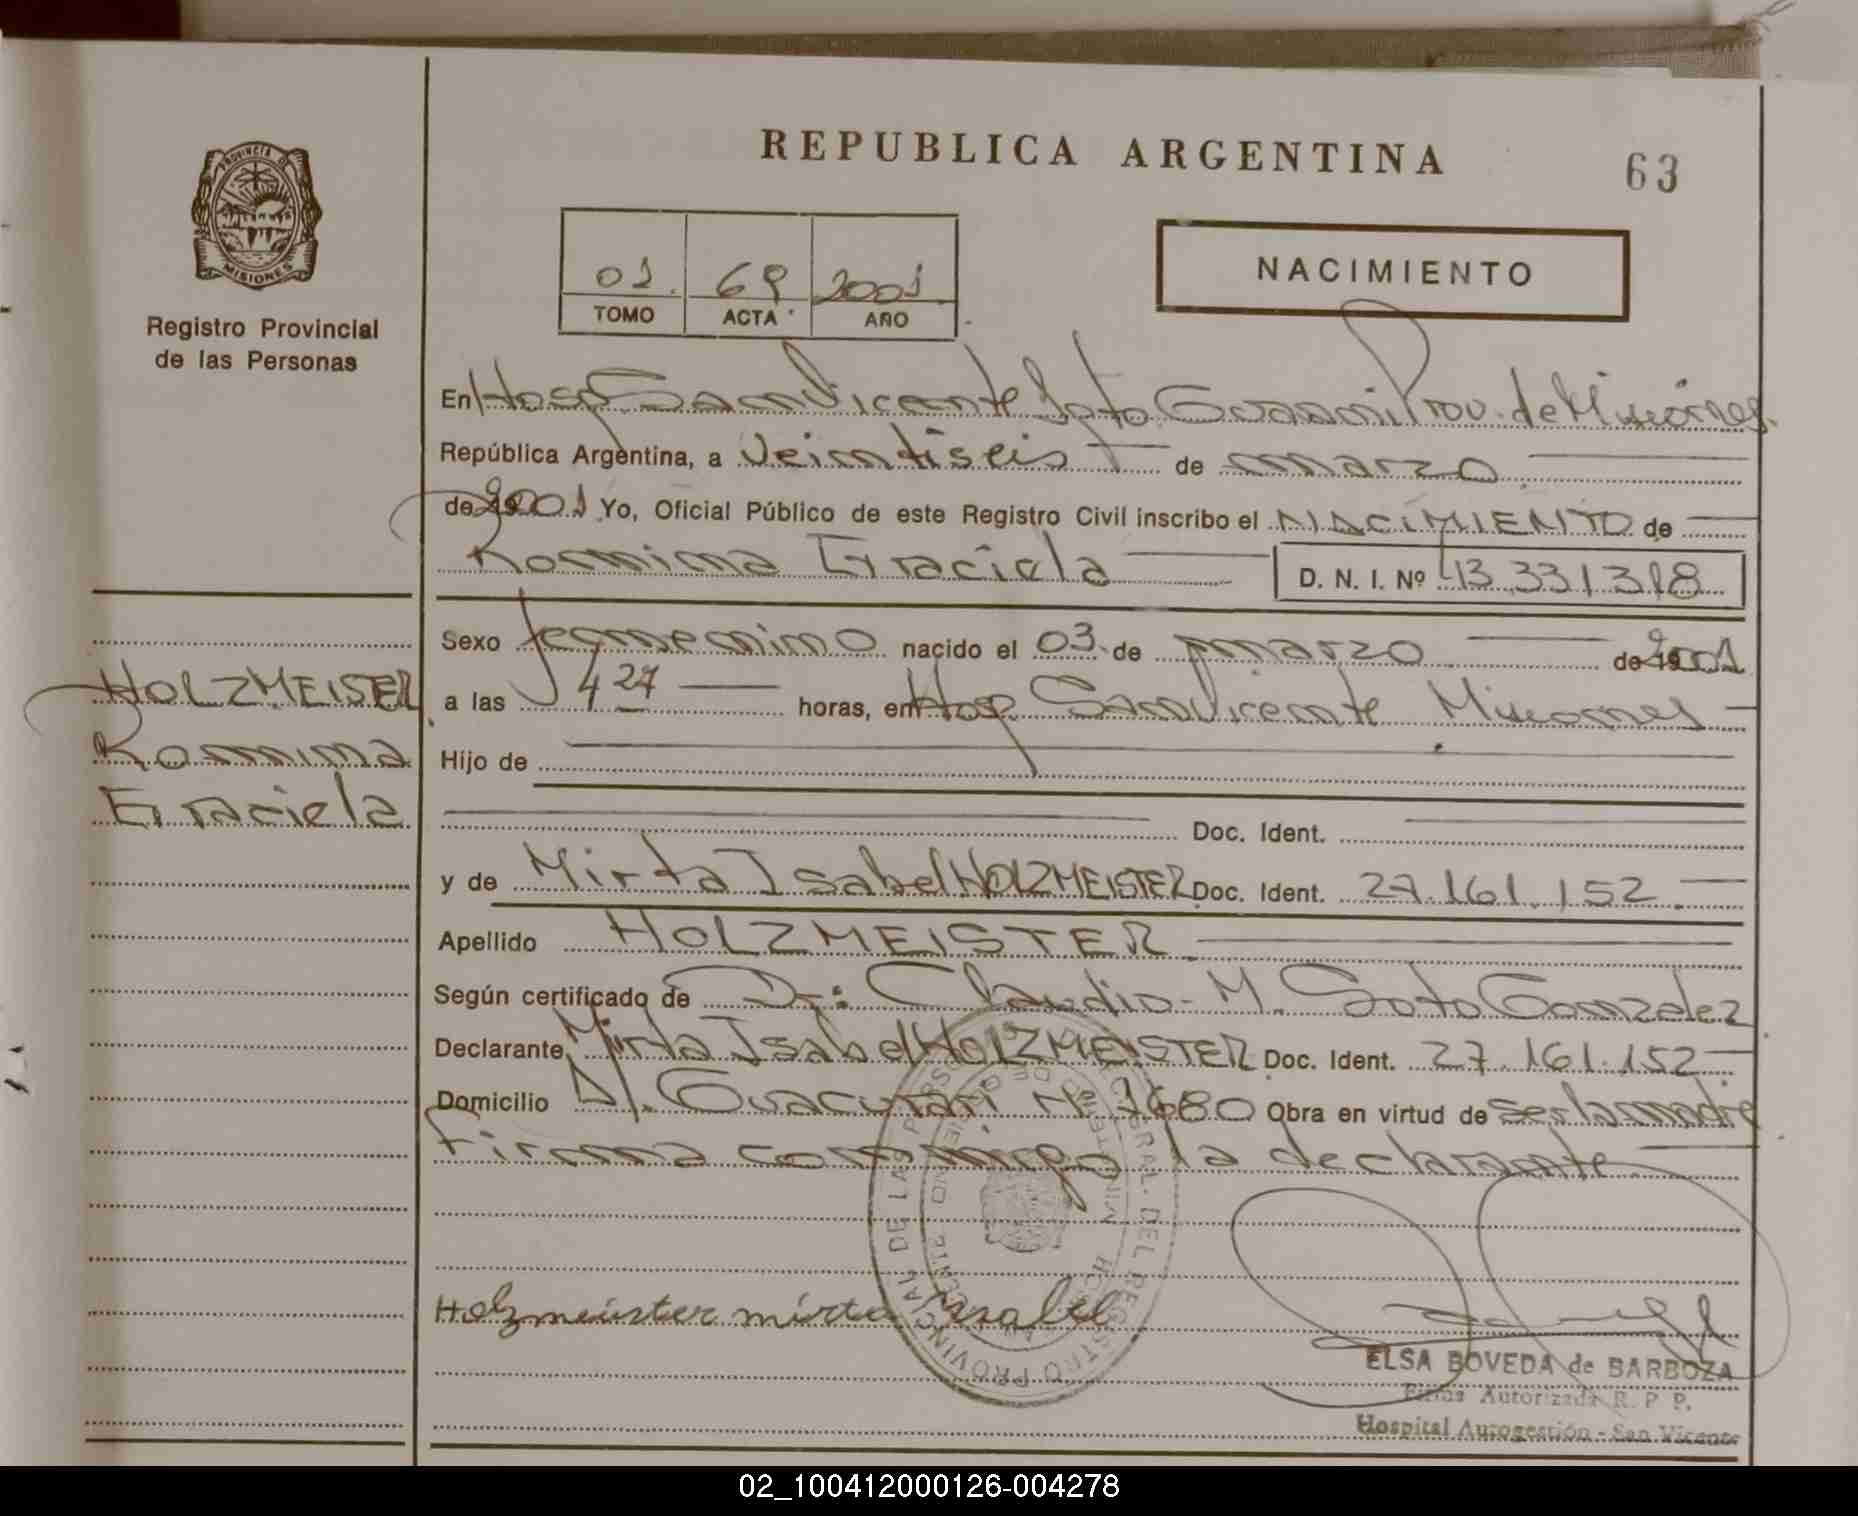 REPUBLICA ARGENTINA
63
PROVINCIA D
MISIONES
Registro Provincial
de las Personas
01. 69 2001
TOMO ACTA AÑO
NACIMIENTO
En Hosp San Vicente Dpto Guarani Prov. de Misiones.
República Argentina, a Veintiseis de marzo
de 2001 Yo, Oficial Público de este Registro Civil inscribo el NACIMIENTO de
Rommina Graciela D. N. I. Nº 43.331.318
Sexo femenino nacido el 03 de marzo de 2001
HOLZMEISTER
Rommina
Graciela
a las 4 27 horas, en Hosp. San Vicente Misiones
Hijo de
Doc. Ident.
y de Mirta Isabel HOLZMEISTER Doc. Ident. 27.161.152
Apellido HOLZMEISTER
Según certificado de Dr: Claudio M. Soto Gonzalez
Declarante, Mirta Isabel HOLZMEISTER Doc. Ident. 27.161.152
Domicilio Guacurari Nº 1680 Obra en virtud de ser la madre
Firma conmigo la declarante
Holzmeister mirta isabel
ELSA BOVEDA de BARBOZA
Firma Autorizada R. P. P.
Hospital Autogestión - San Vicente
02_100412000126-004278